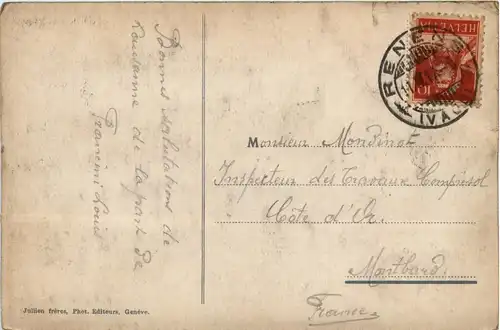 Bonnes salutations de
Lausanne de la part de
Louis
HELVETIA
10
RENE
(VAUD)
Monsieur Mondinot
Inspecteur des Travaux Compresol
Côte d'Or.
Montbard.
France
Jullien frères, Phot. Editeurs, Genève.